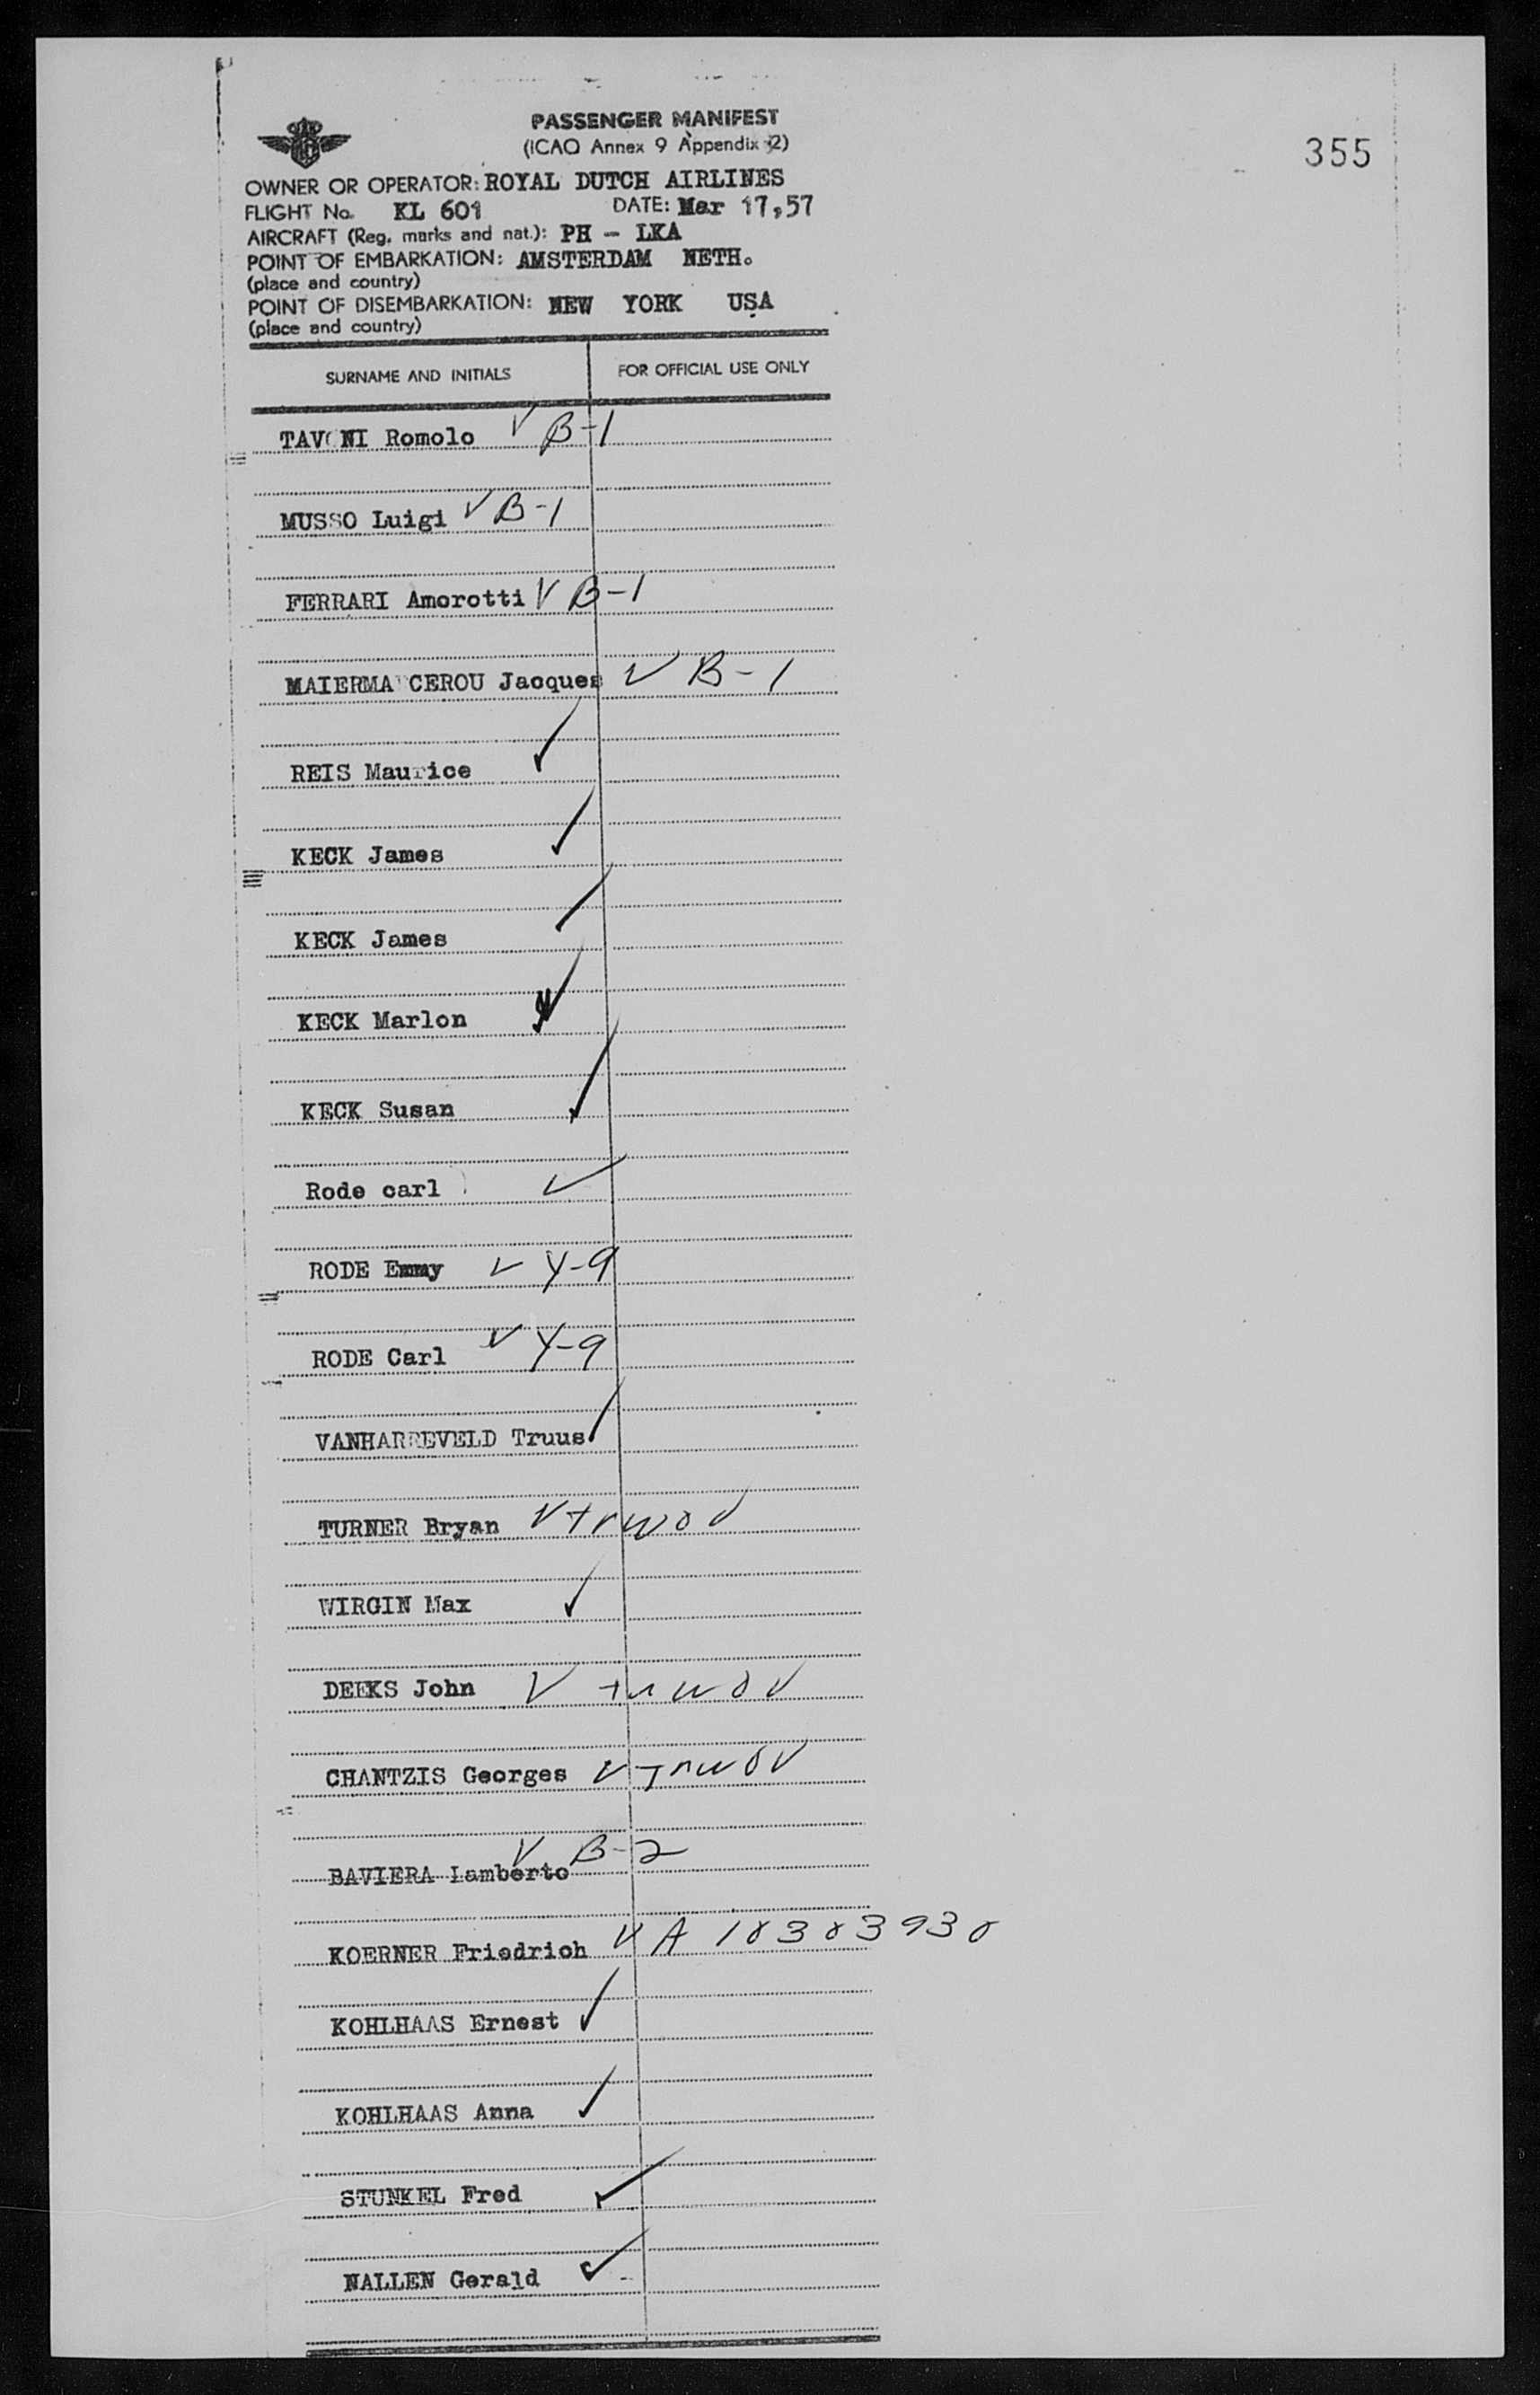 PASSENGER MANIFEST
(ICAO Annex 9 Appendix 2)
355
OWNER OR OPERATOR: ROYAL DUTCH AIRLINES
FLIGHT No. KL 601 DATE: Mar 17,57
AIRCRAFT (Reg. marks and nat.): PH - LKA
POINT OF EMBARKATION: AMSTERDAM NETH.
(place and country)
POINT OF DISEMBARKATION: NEW YORK USA
(place and country)
SURNAME AND INITIALS FOR OFFICIAL USE ONLY
TAVONI Romolo ✓ B-1
MUSSO Luigi ✓ B-1
FERRARI Amorotti ✓ B-1
MAIERMA CEROU Jacques ✓ B-1
REIS Maurice ✓
KECK James ✓
KECK James ✓
KECK Marlon ✓
KECK Susan ✓
Rode carl ✓
RODE Emmy ✓ Y-9
RODE Carl ✓ Y-9
VANHARREVELD Truus ✓
TURNER Bryan ✓ trwov
WIRGIN Max ✓
DEEKS John ✓ trwov
CHANTZIS Georges ✓ Trwov
BAVIERA Lamberto ✓ B-2
KOERNER Friedrich ✓ A 10303930
KOHLHAAS Ernest ✓
KOHLHAAS Anna ✓
STUNKEL Fred ✓
NALLEN Gerald ✓